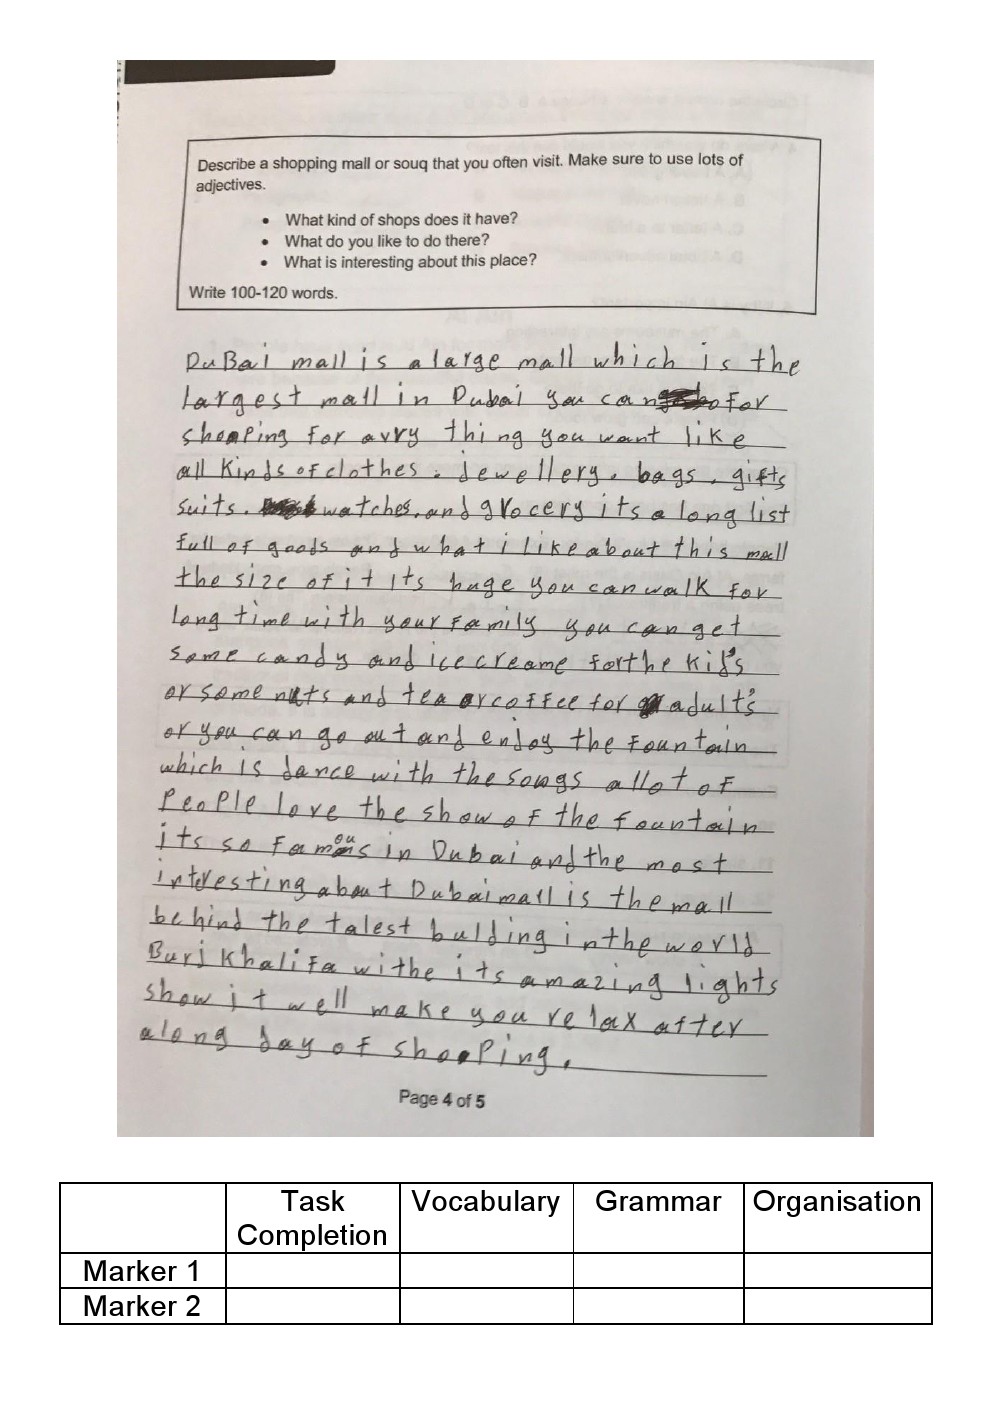 Describe a shopping mall or souq that you often visit. Make sure to use lots of
adjectives.
• What kind of shops does it have?
• What do you like to do there?
• What is interesting about this place?
Write 100-120 words.
DuBai mall is a large mall which is the
largest mall in Dubai you can for
shopping for avry thing you want like
all kinds of clothes. jewellery. bags. gifts
suits. watches. and grocery its a long list
full of goods and what i like about this mall
the size of it its huge you can walk for
long time with your family you can get
some candy and ice creame for the kid's
or some nuts and tea or coffee for adult's
or you can go out and enjoy the fountain
which is dance with the songs allot of
people love the show of the fountain
its so famous in Dubai and the most
intresting about Dubai mall is the mall
behind the talest bulding in the world
Burj khalifa withe its amazing lights
show it well make you relax after
along day of shopping.
Page 4 of 5
Task Completion Vocabulary Grammar Organisation
Marker 1
Marker 2